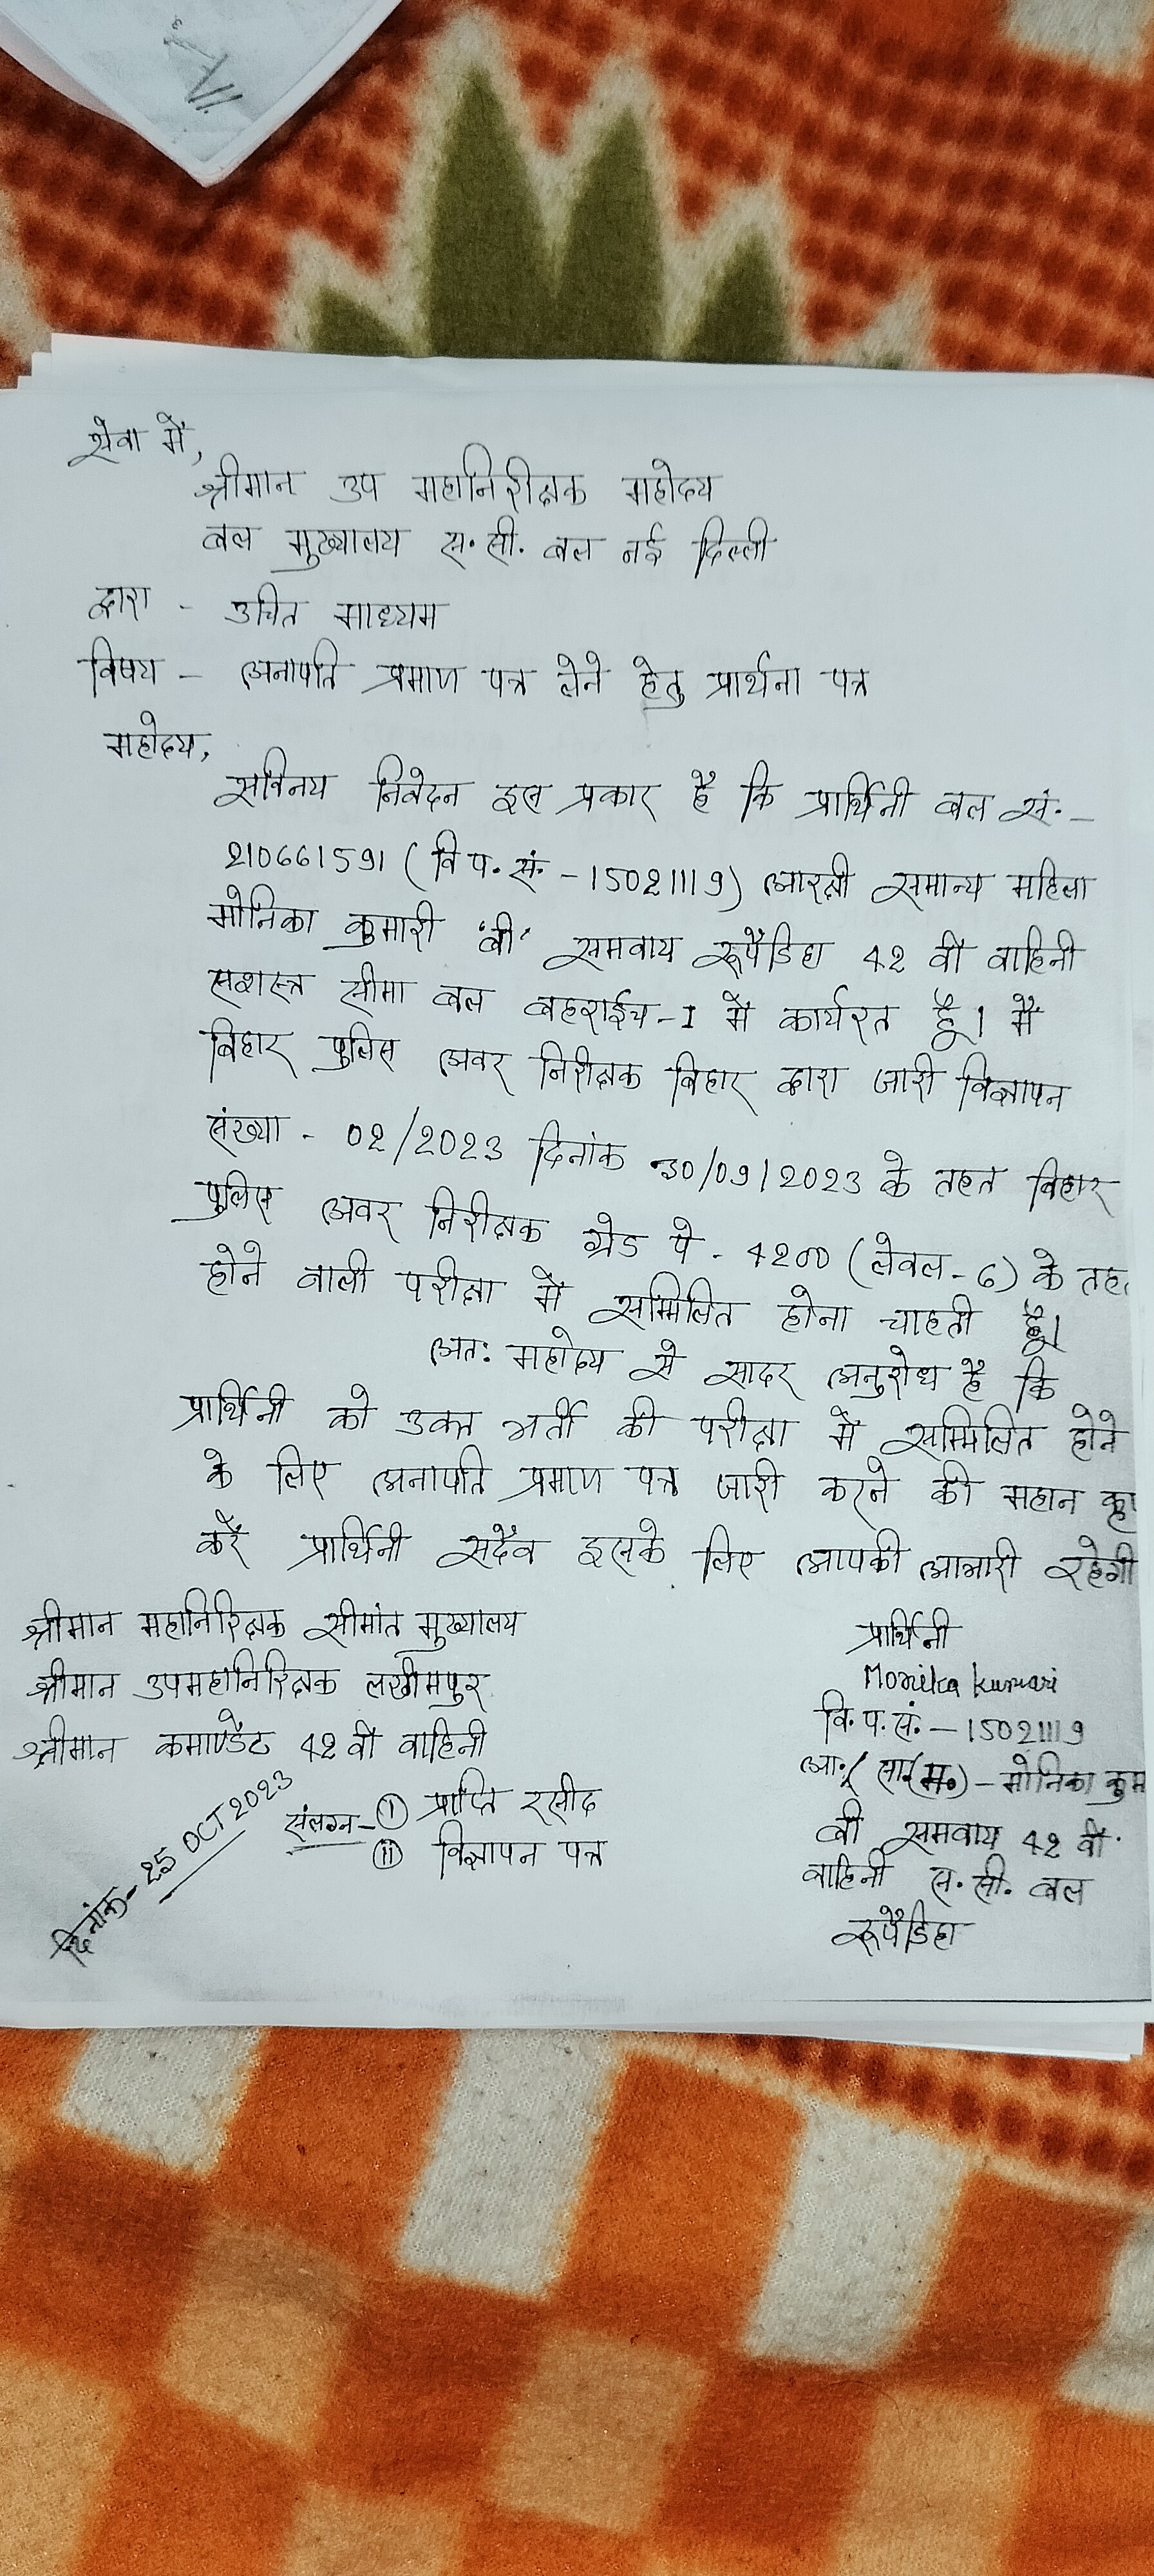 सेवा में,
श्रीमान उप महानिरीक्षक महोदय
बल मुख्यालय स.सी. बल नई दिल्ली
द्वारा - उचित माध्यम
विषय - अनापति प्रमाण पत्र लेने हेतु प्रार्थना पत्र
महोदय,
सविनय निवेदन इस प्रकार है कि प्रार्थिनी बल सं.-
210661591 (वि प. सं. -15021119) आरक्षी समान्य महिला
मोनिका कुमारी 'बी' समवाय रूपैडिहा 42 वी वाहिनी
सशस्त्र सीमा बल बहराईच-I में कार्यरत हूँ। मैं
बिहार पुलिस अवर निरीक्षक बिहार द्वारा जारी विज्ञापन
संख्या - 02/2023 दिनांक 30/09/2023 के तहत बिहार
पुलिस अवर निरीक्षक ग्रेड पे - 4200 (लेवल-6) के तहत
होने वाली परीक्षा में सम्मिलित होना चाहती हूँ।
अतः महोदय से सादर अनुरोध है कि
प्रार्थिनी को उक्त भर्ती की परीक्षा में सम्मिलित होने
के लिए अनापति प्रमाण पत्र जारी करने की महान
करें प्रार्थिनी सदैव इसके लिए आपकी आभारी रहेगी
श्रीमान महानिरिक्षक सीमांत मुख्यालय
श्रीमान उपमहानिरिक्षक लखीमपुर
श्रीमान कमाण्डेंट 42 वी वाहिनी
दिनांक- 25 OCT 2023
संलग्न - (i) प्राप्ति रसीद
(ii) विज्ञापन पत्र
प्रार्थिनी
Monika kumari
वि. प. सं. - 15021119
आ./ सा(म.) - मोनिका
बी समवाय 42 वी
वाहिनी स.सी. बल
रूपैडिहा